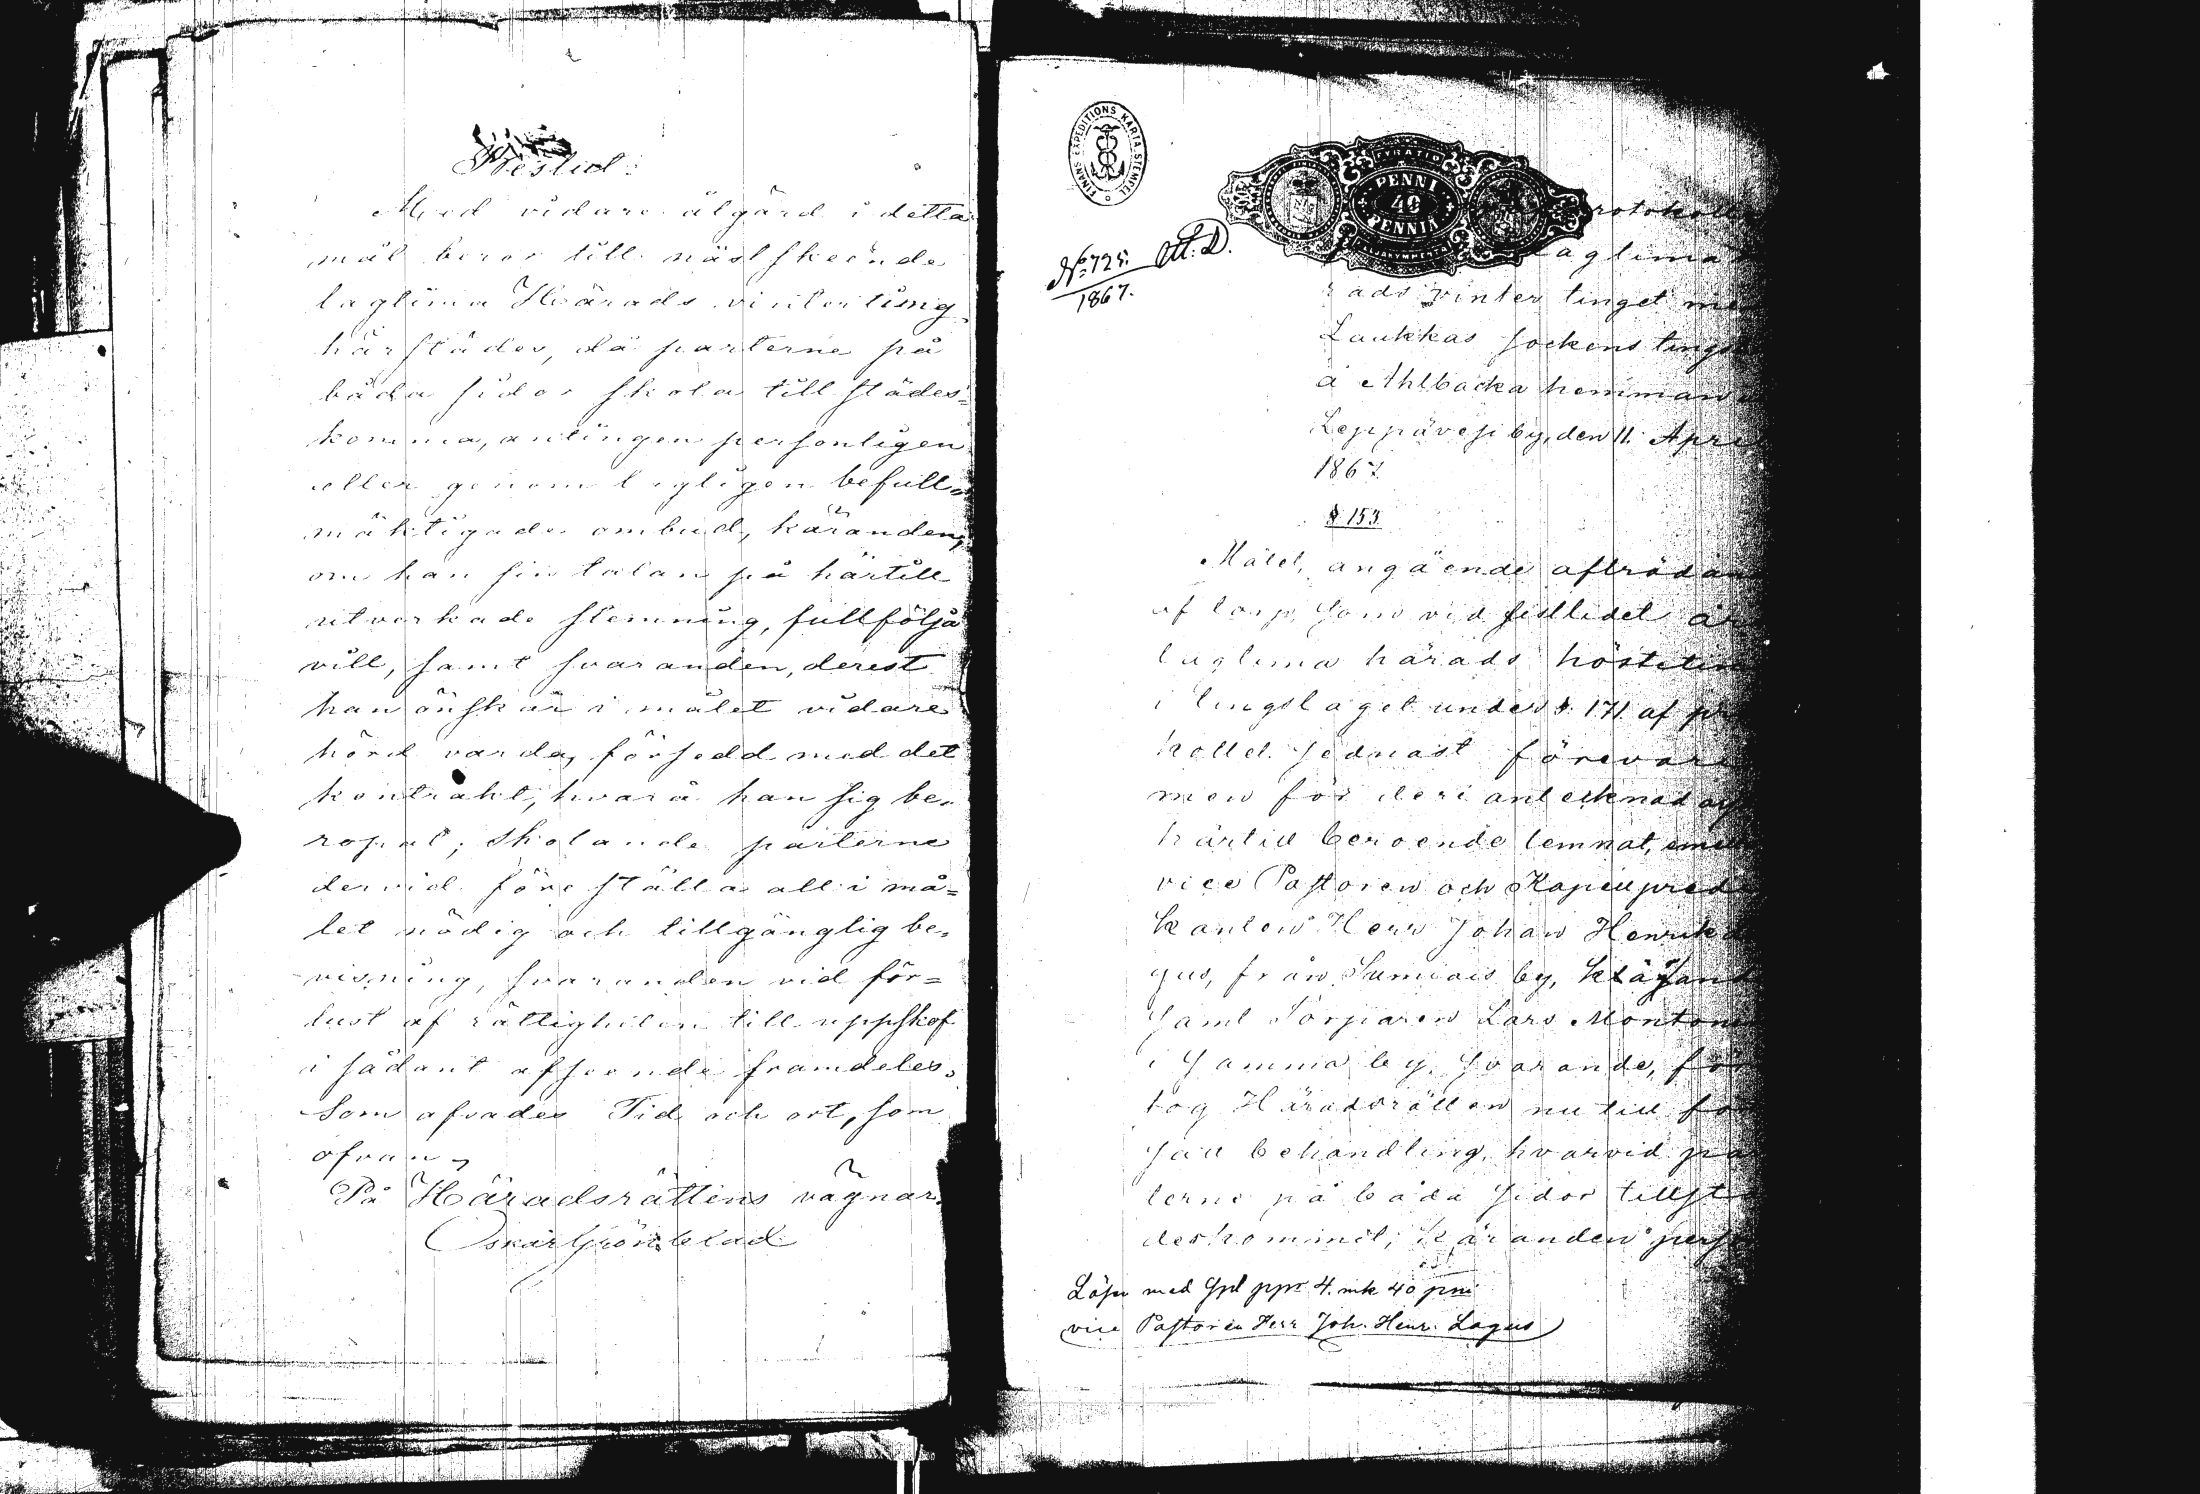 Beslut:
Med vidare åtgärd i detta
mål beror till nästskeende
lagtima Härads vinterting
härstädes, då parterne på
båda sidor skola tillstädes=
komma, antingen personligen
eller genom lagligen befull=
mäktigade ombud, käranden,
om han sin talan på härtill
utverkade stemning, fullfölja
vill, samt svaranden, derest
han önskar i målet vidare
hörd varda, försedd med det
kontrakt, hvarå han sig be=
ropat; skolande parterne
dervid föreställa all i må=
let nödig och tillgänglig be=
visning, svaranden vid för=
lust af rättigheten till uppskof
i sådant afseende framdeles.
Som afsades Tid och ort, som
ofvan,
På Häradsrättens vägnar,
Oskar Grönblad
FINANS EXPEDITIONS KARTA STEMPEL
PENNI
40
PENNIÄ
No 725. Ut. D.
1867.
rotokoll
agtima
rads vinter tinget me
Laukkas sockens tings
å Ahlbacka hemman
Leppävesi by, den 11 Apri
1867.
§ 153.
Målet, angående afträdan
af torp, som vid sistlidet år
lagtima härads höstetin
i tingslaget under § 171 af pr
kollet sednast förevari
men för deri antecknad or
härtill beroende lemnat, emel
vice Pastoren och Kapellpredi
kanten Herr Johan Henrik
gus, från Sumiais by, kärand
samt Torparen Lars Monton
i samma by, svarande, för
tog Häradsrätten nu till for
satt behandling, hvarvid par
terne på båda sidor tillstä
deskommit; käranden pers
Lösen med Spl ppr 4. mk 40 pni
vice Pastoren Herr Joh. Henr. Lagus